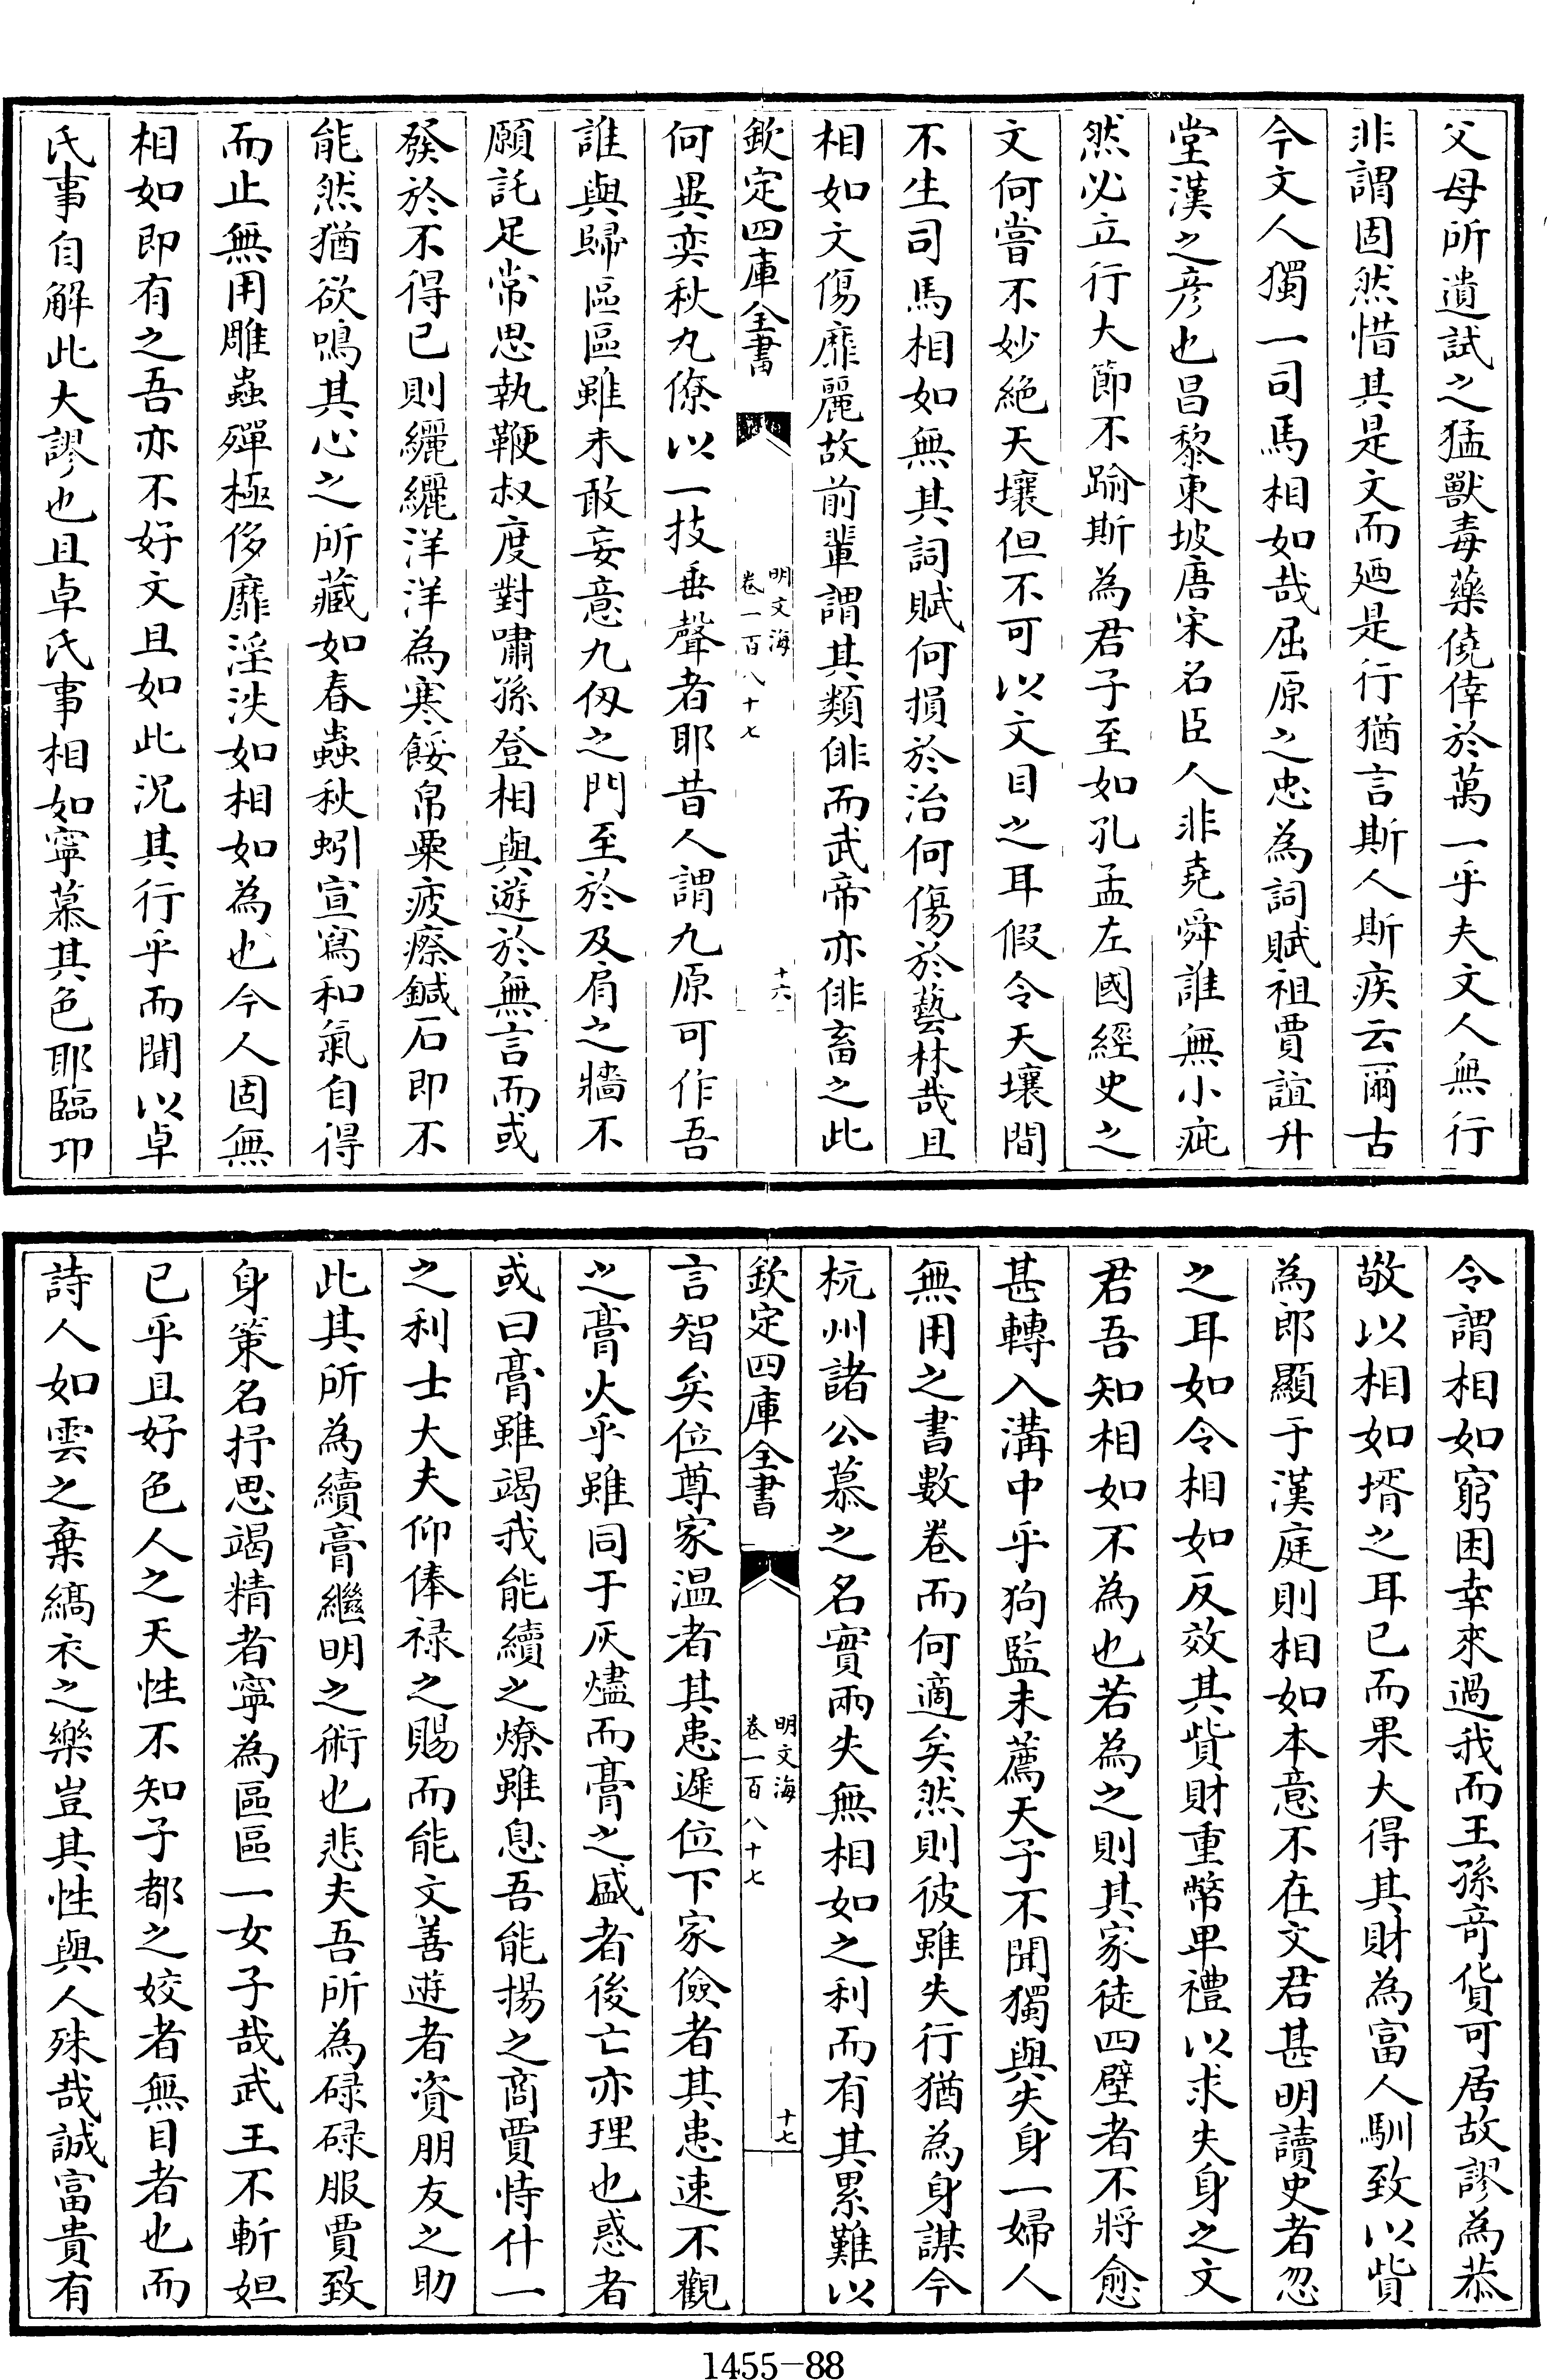 父母所遺試之猛獸毒藥僥倖於萬一乎夫文人無行
非謂固然惜其是文而廼是行猶言斯人斯疾云爾古
今文人獨一司馬相如哉屈原之忠為詞賦祖賈誼升
堂漢之彦也昌黎東坡唐宋名臣人非堯舜誰無小疵
然必立行大節不踰斯為君子至如孔孟左國經史之
文何嘗不妙絶天壤但不可以文目之耳假令天壤間
不生司馬相如無其詞賦何損於治何傷於藝林哉且
相如文傷靡麗故前輩謂其類俳而武帝亦俳畜之此
欽定四庫全書
明文海
卷一百八十七
十六
何異奕秋九僚以一技垂聲者耶昔人謂九原可作吾
誰與歸區區雖未敢妄意九仭之門至於及肩之牆不
願託足常思執鞭叔度對嘯孫登相與遊於無言而或
發於不得已則纚纚洋洋為寒餒帛粟疲瘵鍼石即不
能然猶欲鳴其心之所藏如春蟲秋蚓宣寫和氣自得
而止無用雕蟲殫極侈靡淫泆如相如為也今人固無
相如即有之吾亦不好文且如此況其行乎而聞以卓
氏事自解此大謬也且卓氏事相如寧慕其色耶臨卭
令謂相如窮困幸來過我而王孫奇貨可居故謬為恭
敬以相如壻之耳已而果大得其財為富人馴致以貲
為郎顯于漢庭則相如本意不在文君甚明讀史者忽
之耳如令相如反效其貲財重幣卑禮以求失身之文
君吾知相如不為也若為之則其家徒四壁者不將愈
甚轉入溝中乎狗監未薦天子不聞獨與失身一婦人
無用之書數卷而何適矣然則彼雖失行猶為身謀今
杭州諸公慕之名實兩失無相如之利而有其累難以
欽定四庫全書
明文海
卷一百八十七
十七
言智矣位尊家温者其患遲位下家儉者其患速不觀
之膏火乎雖同于灰燼而膏之盛者後亡亦理也惑者
或曰膏雖竭我能續之燎雖息吾能揚之商賈恃什一
之利士大夫仰俸禄之賜而能文善遊者資朋友之助
此其所為續膏繼明之術也悲夫吾所為碌碌服賈致
身策名抒思竭精者寧為區區一女子哉武王不斬妲
已乎且好色人之天性不知子都之姣者無目者也而
詩人如雲之棄縞衣之樂豈其性與人殊哉誠富貴有
1455-88